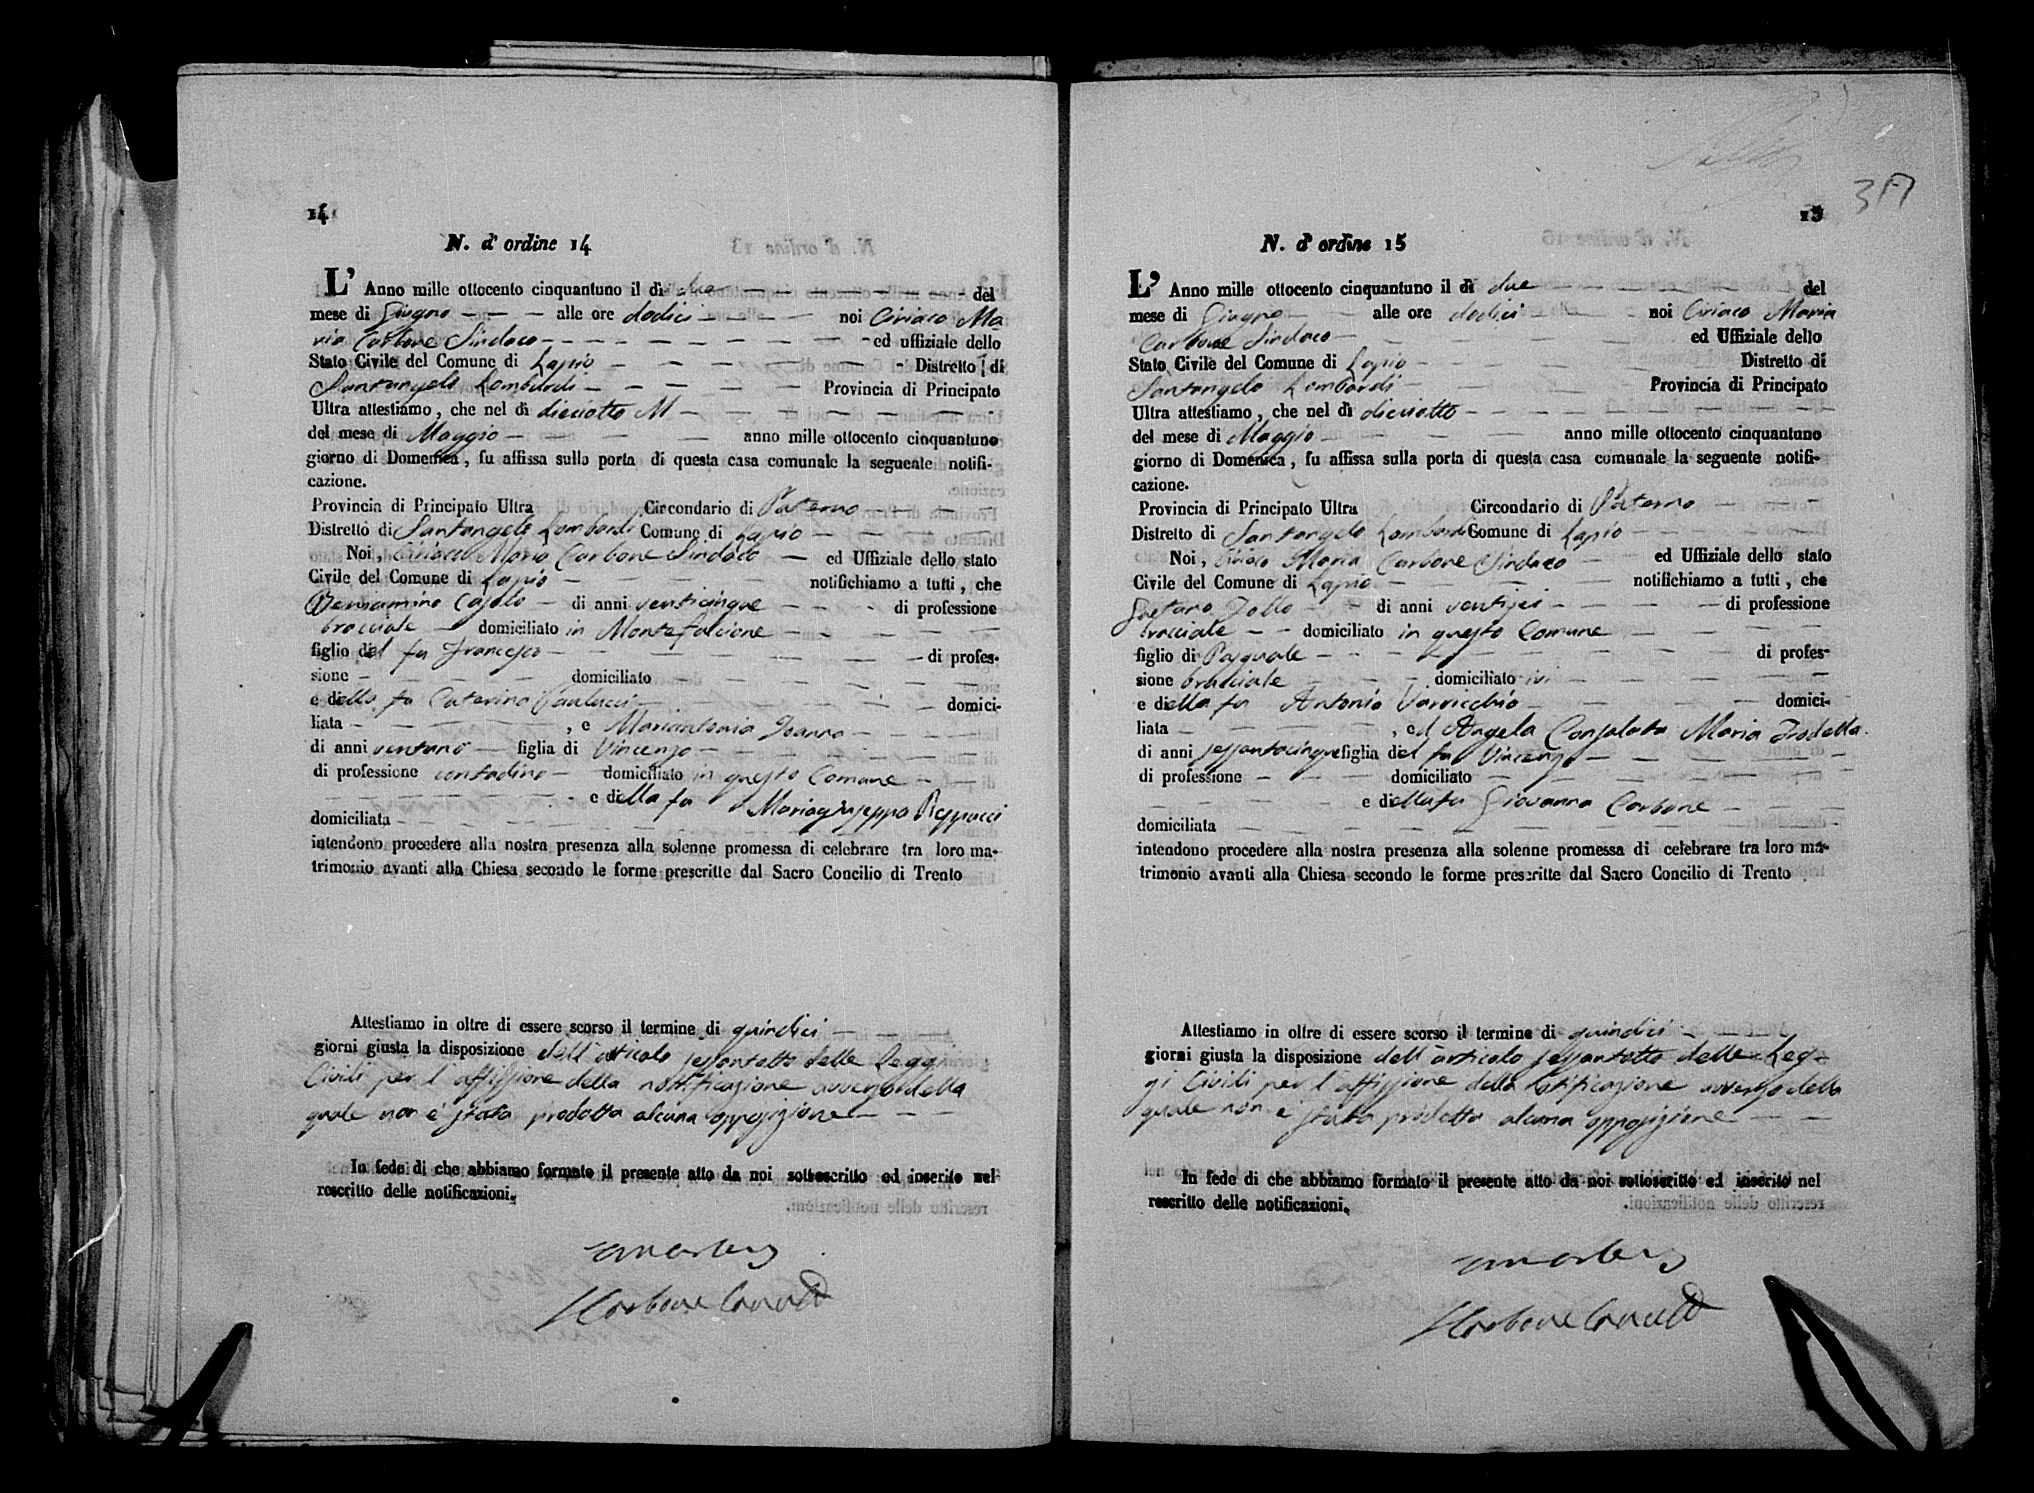 14
N. d' ordine 14
L' Anno mille ottocento cinquantuno il dì due del
mese di Giugno alle ore dodici noi Ciriaco Ma
ria Carbone Sindaco ed uffiziale dello
Stato Civile del Comune di Lapio Distretto di
Santangelo Lombardi Provincia di Principato
Ultra attestiamo, che nel dì dieciotto M
del mese di Maggio anno mille ottocento cinquantuno
giorno di Domenica, fu affissa sulla porta di questa casa comunale la seguente notifi-
cazione.
Provincia di Principato Ultra Circondario di Paterno
Distretto di Santangelo Lombardi Comune di Lapio
Noi, Ciriaco Maria Carbone Sindaco ed Uffiziale dello stato
Civile del Comune di Lapio notifichiamo a tutti, che
Beniamino di anni venticinque di professione
bracciale domiciliato in Montefalcione
figlio del fu Francesco di profes-
sione domiciliato
e della fu Caterina Paulucci domici-
liata , e Mariantonia Joanna
di anni ventuno figlia di Vincenzo
di professione contadino domiciliato in questo Comune
e della fu Mariagiuseppa
domiciliata
intendono procedere alla nostra presenza alla solenne promessa di celebrare tra loro ma-
trimonio avanti alla Chiesa secondo le forme prescritte dal Sacro Concilio di Trento
Attestiamo in oltre di essere scorso il termine di quindici
giorni giusta la disposizione dell'articolo sessantotto delle Leggi
Civili per l'affissione della notificazione avverso della
quale non è stata prodotta alcuna opposizione
In fede di che abbiamo formato il presente atto da noi sottoscritto ed inserito nel
rescritto delle notificazioni.
Carbone
15
N. d' ordine 15
L' Anno mille ottocento cinquantuno il dì due del
mese di Giugno alle ore dodici noi Ciriaco Maria
Carbone Sindaco ed Uffiziale dello
Stato Civile del Comune di Lapio Distretto di
Santangelo Lombardi Provincia di Principato
Ultra attestiamo, che nel dì dieciotto
del mese di Maggio anno mille ottocento cinquantuno
giorno di Domenica, fu affissa sulla porta di questa casa comunale la seguente notifi-
cazione.
Provincia di Principato Ultra Circondario di Paterno
Distretto di Santangelo Lombardi Comune di Lapio
Noi, Ciriaco Maria Carbone Sindaco ed Uffiziale dello stato
Civile del Comune di Lapio notifichiamo a tutti, che
Gaetano di anni ventisei di professione
bracciale domiciliato in questo Comune
figlio di Pasquale di profes-
sione bracciale domiciliato ivi
e della fu Antonia Varricchio domici-
liata , ed Angela Consolata Maria
di anni sessantacinque figlia del fu Vincenzo
di professione domiciliato
e della fu Giovanna Carbone
domiciliata
intendono procedere alla nostra presenza alla solenne promessa di celebrare tra loro ma-
trimonio avanti alla Chiesa secondo le forme prescritte dal Sacro Concilio di Trento
Attestiamo in oltre di essere scorso il termine di quindici
giorni giusta la disposizione dell'articolo sessantotto delle Leg-
gi Civili per l'affissione della notificazione avverso della
quale non è stata prodotta alcuna opposizione
In fede di che abbiamo formato il presente atto da noi sottoscritto ed inserito nel
rescritto delle notificazioni.
Carbone